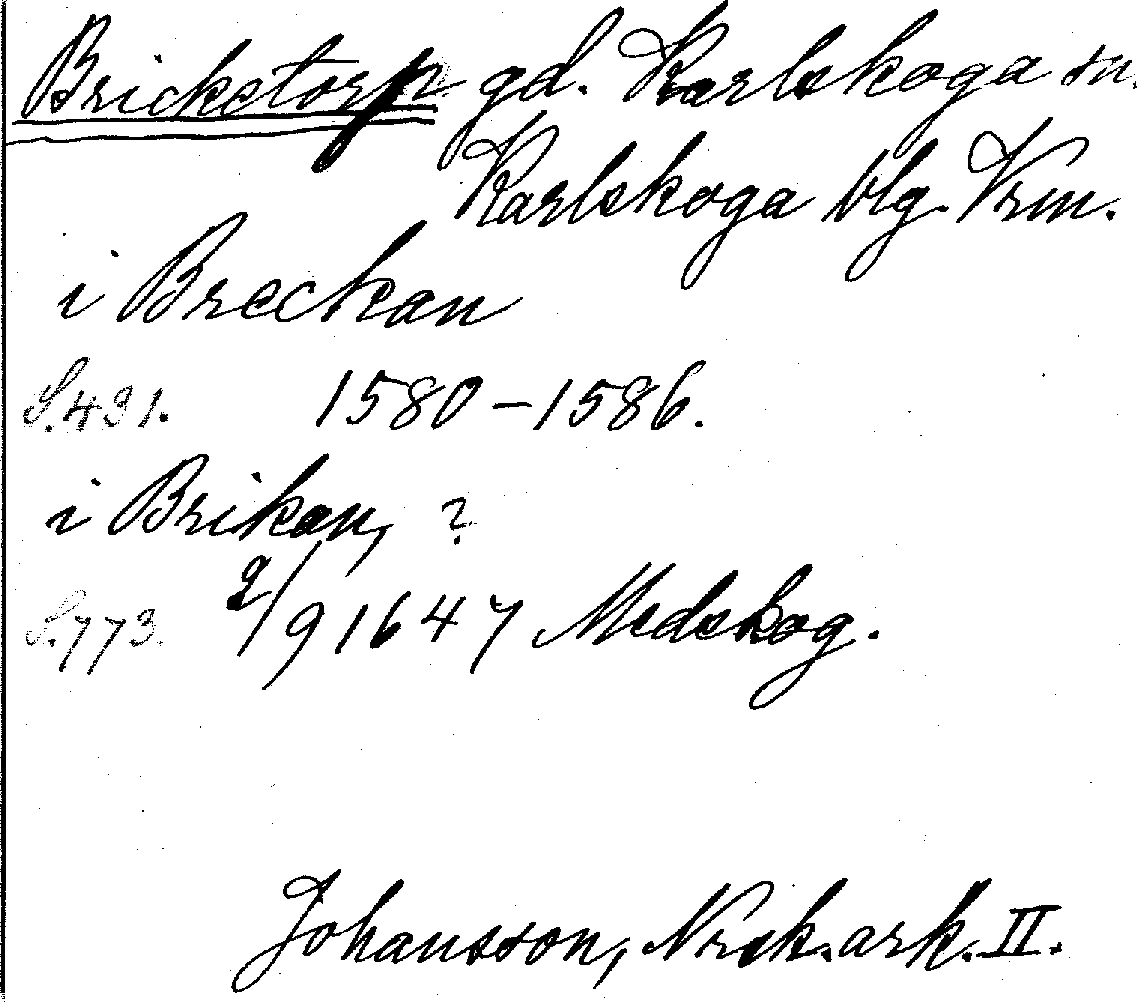 Brickstorp gd. Karlskoga sn.
Karlskoga blg. Vrm.
i Breckan
S. 431. 1580-1586.
i Brikan, ?
S. 773. 2/9 1647 Medskog.
Johansson, Nrk. ark. II.